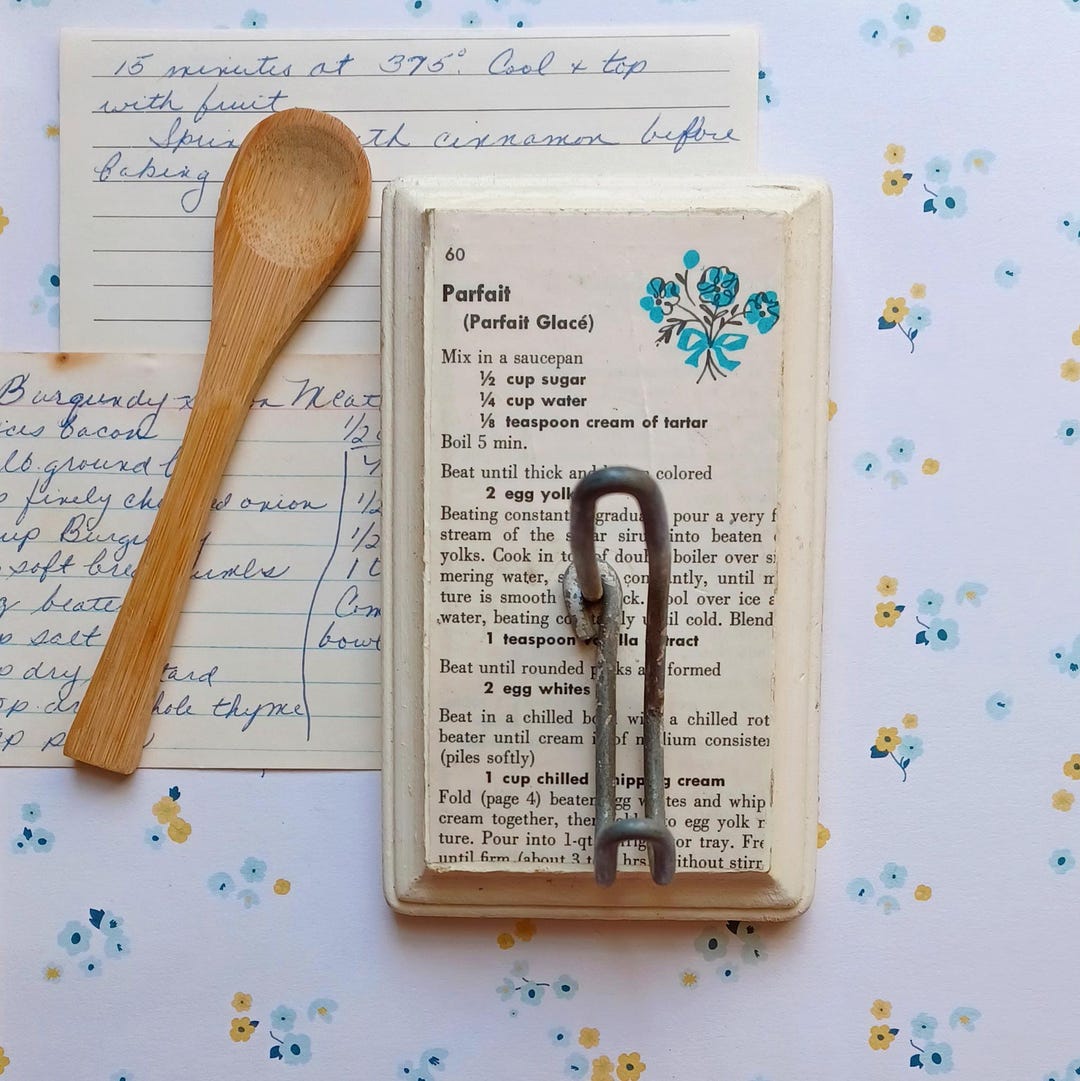 15 minutes at 375°. Cool + top
with fruit
cinnamon before
baking
Burgundy Meat
bacon
lb. ground
finely onion
1/2
Burgundy
1/2
soft
1
beaten
salt
bowl
dry
thyme
60
Parfait
(Parfait Glacé)
Mix in a saucepan
½ cup sugar
¼ cup water
⅛ teaspoon cream of tartar
Boil 5 min.
Beat until thick and colored
2 egg yolk
Beating constant gradua pour a very f
stream of the sugar siru into beaten
yolks. Cook in to of doub boiler over si
mering water, s constantly, until m
ture is smooth ck. ool over ice a
water, beating constantly until cold. Blend
1 teaspoon vanilla extract
Beat until rounded peaks are formed
2 egg whites
Beat in a chilled bowl with a chilled rot
beater until cream is of medium consisten
(piles softly)
1 cup chilled whipping cream
Fold (page 4) beaten egg whites and whip
cream together, then fold into egg yolk
ture. Pour into 1-qt. refrigerator tray. Fre
until firm (about 3 hrs. without stirr